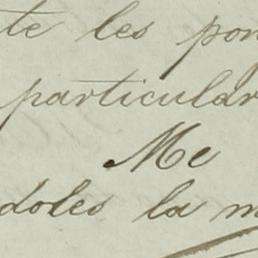 te les pon
particular
Me
doles la m